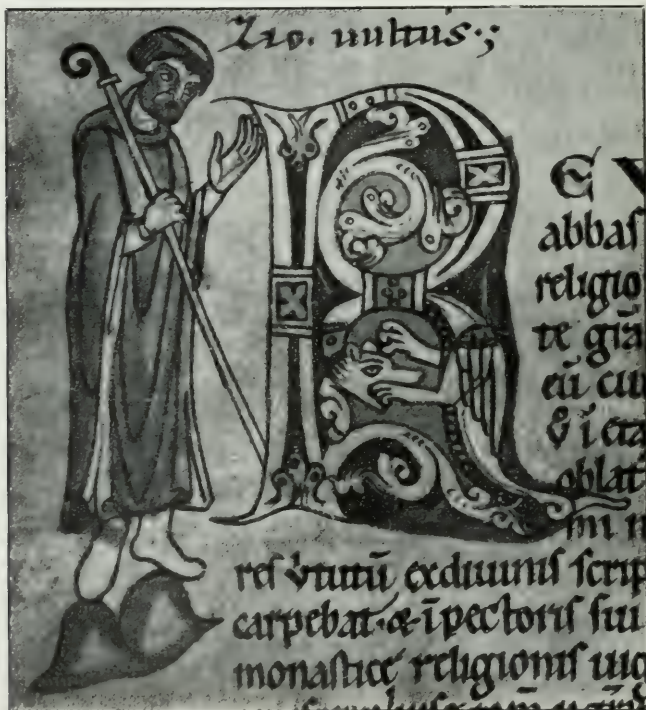 Zio. uultus·;
R EV
abbas
religio
te gr̄a
eū cu
& ī eta
oblat
mi n
res v̄tutū exdiuinis scrip
carpebat·& ī pectoris sui
monastice religionis uig